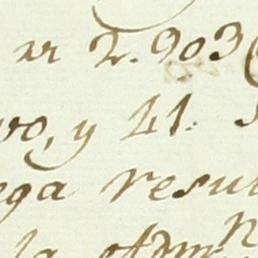 2.903
vo, y 41.
ega resul
la Adm